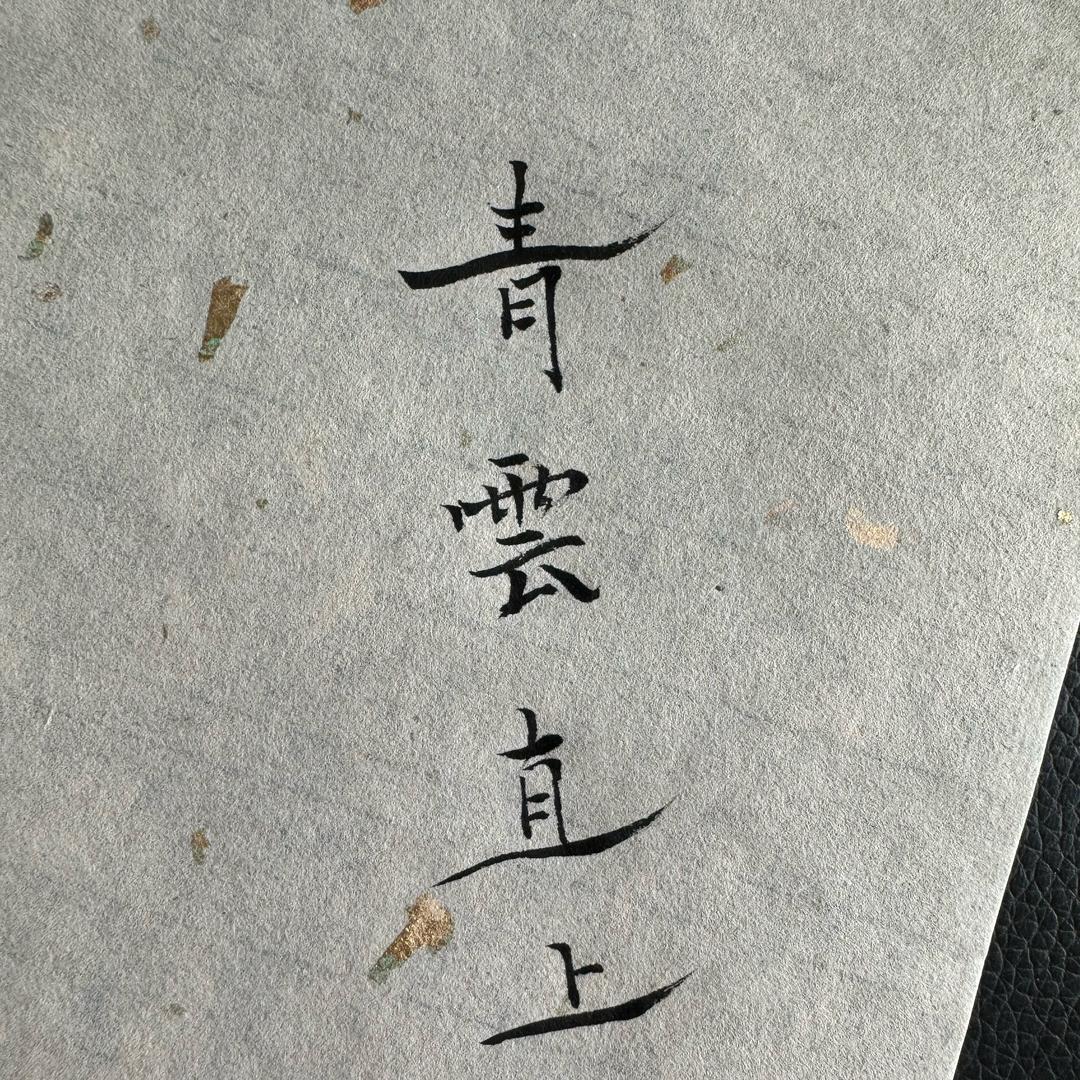 青雲直上